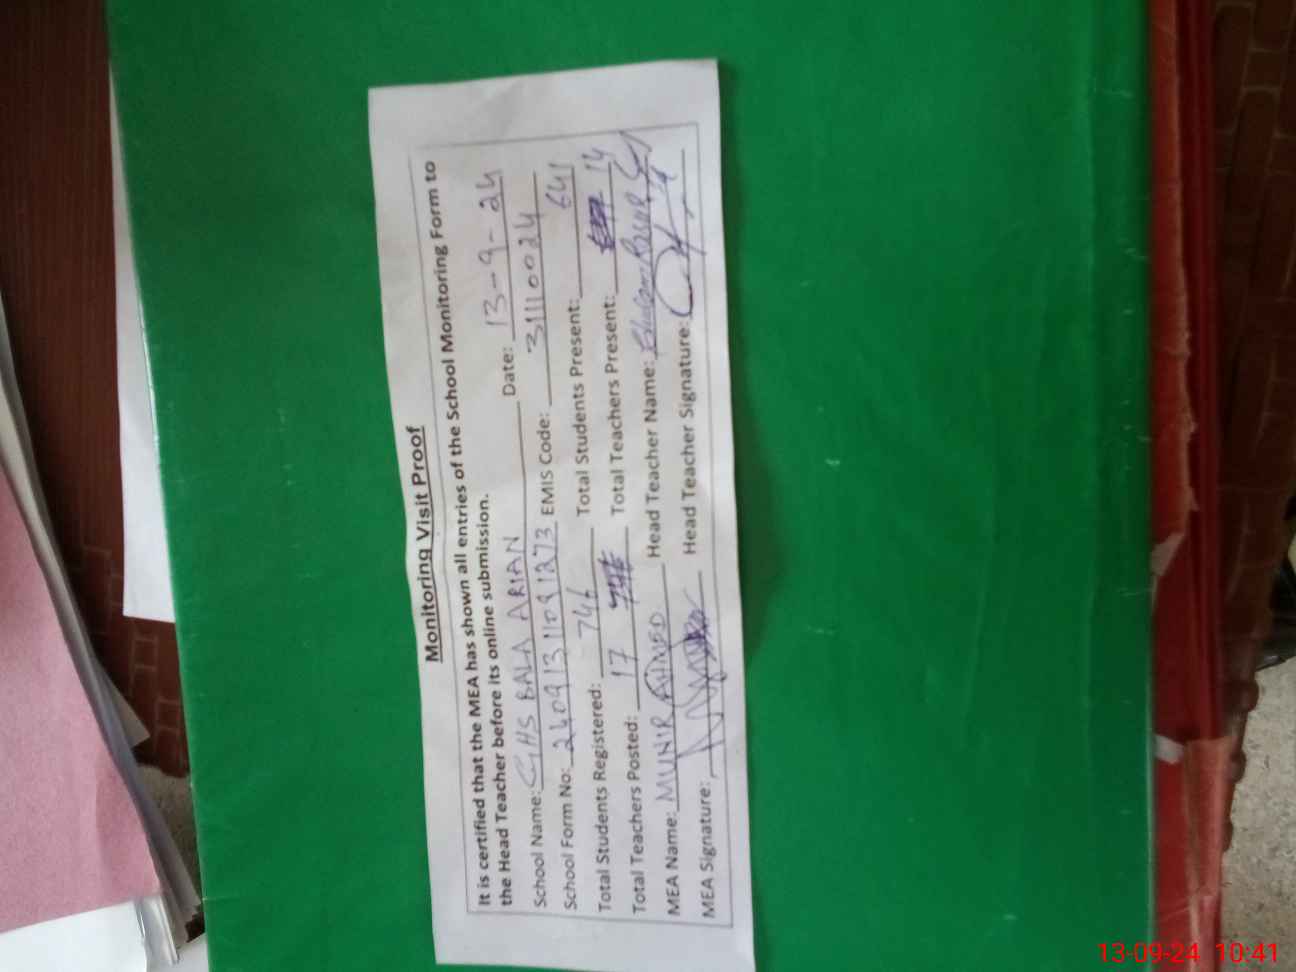 Monitoring Visit Proof
It is certified that the MEA has shown all entries of the School Monitoring Form to
the Head Teacher before its online submission.
School Name: GHS BALA ARIAN Date: 13-9-24
School Form No: 24091311091273 EMIS Code: 31110024
Total Students Registered: 746 Total Students Present: 641
Total Teachers Posted: 17 Total Teachers Present: 14
MEA Name: MUNIR AHMED Head Teacher Name: Ghulam Rasul
MEA Signature: Head Teacher Signature:
13-09-24 10:41